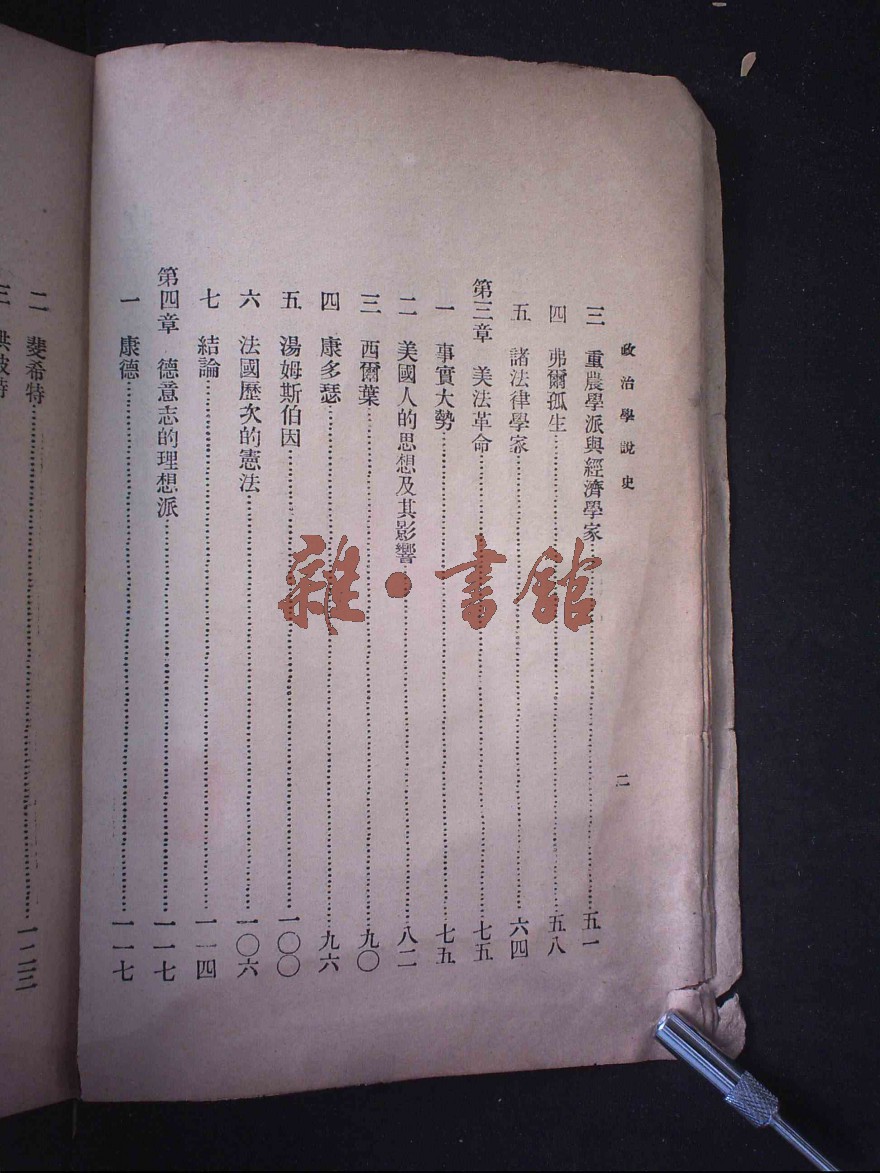 政治學說史
二
三　重農學派與經濟學家……五一
四　弗爾孤生……五八
五　諸法律學家……六四
第三章　美法革命……七五
一　事實大勢……七五
二　美國人的思想及其影響……八二
三　西爾葉……九〇
四　康多瑟……九六
五　湯姆斯伯因……一〇〇
六　法國歷次的憲法……一〇六
七　結論……一一四
第四章　德意志的理想派……一一七
一　康德……一一七
二　斐希特……一二三
三
雜·書館